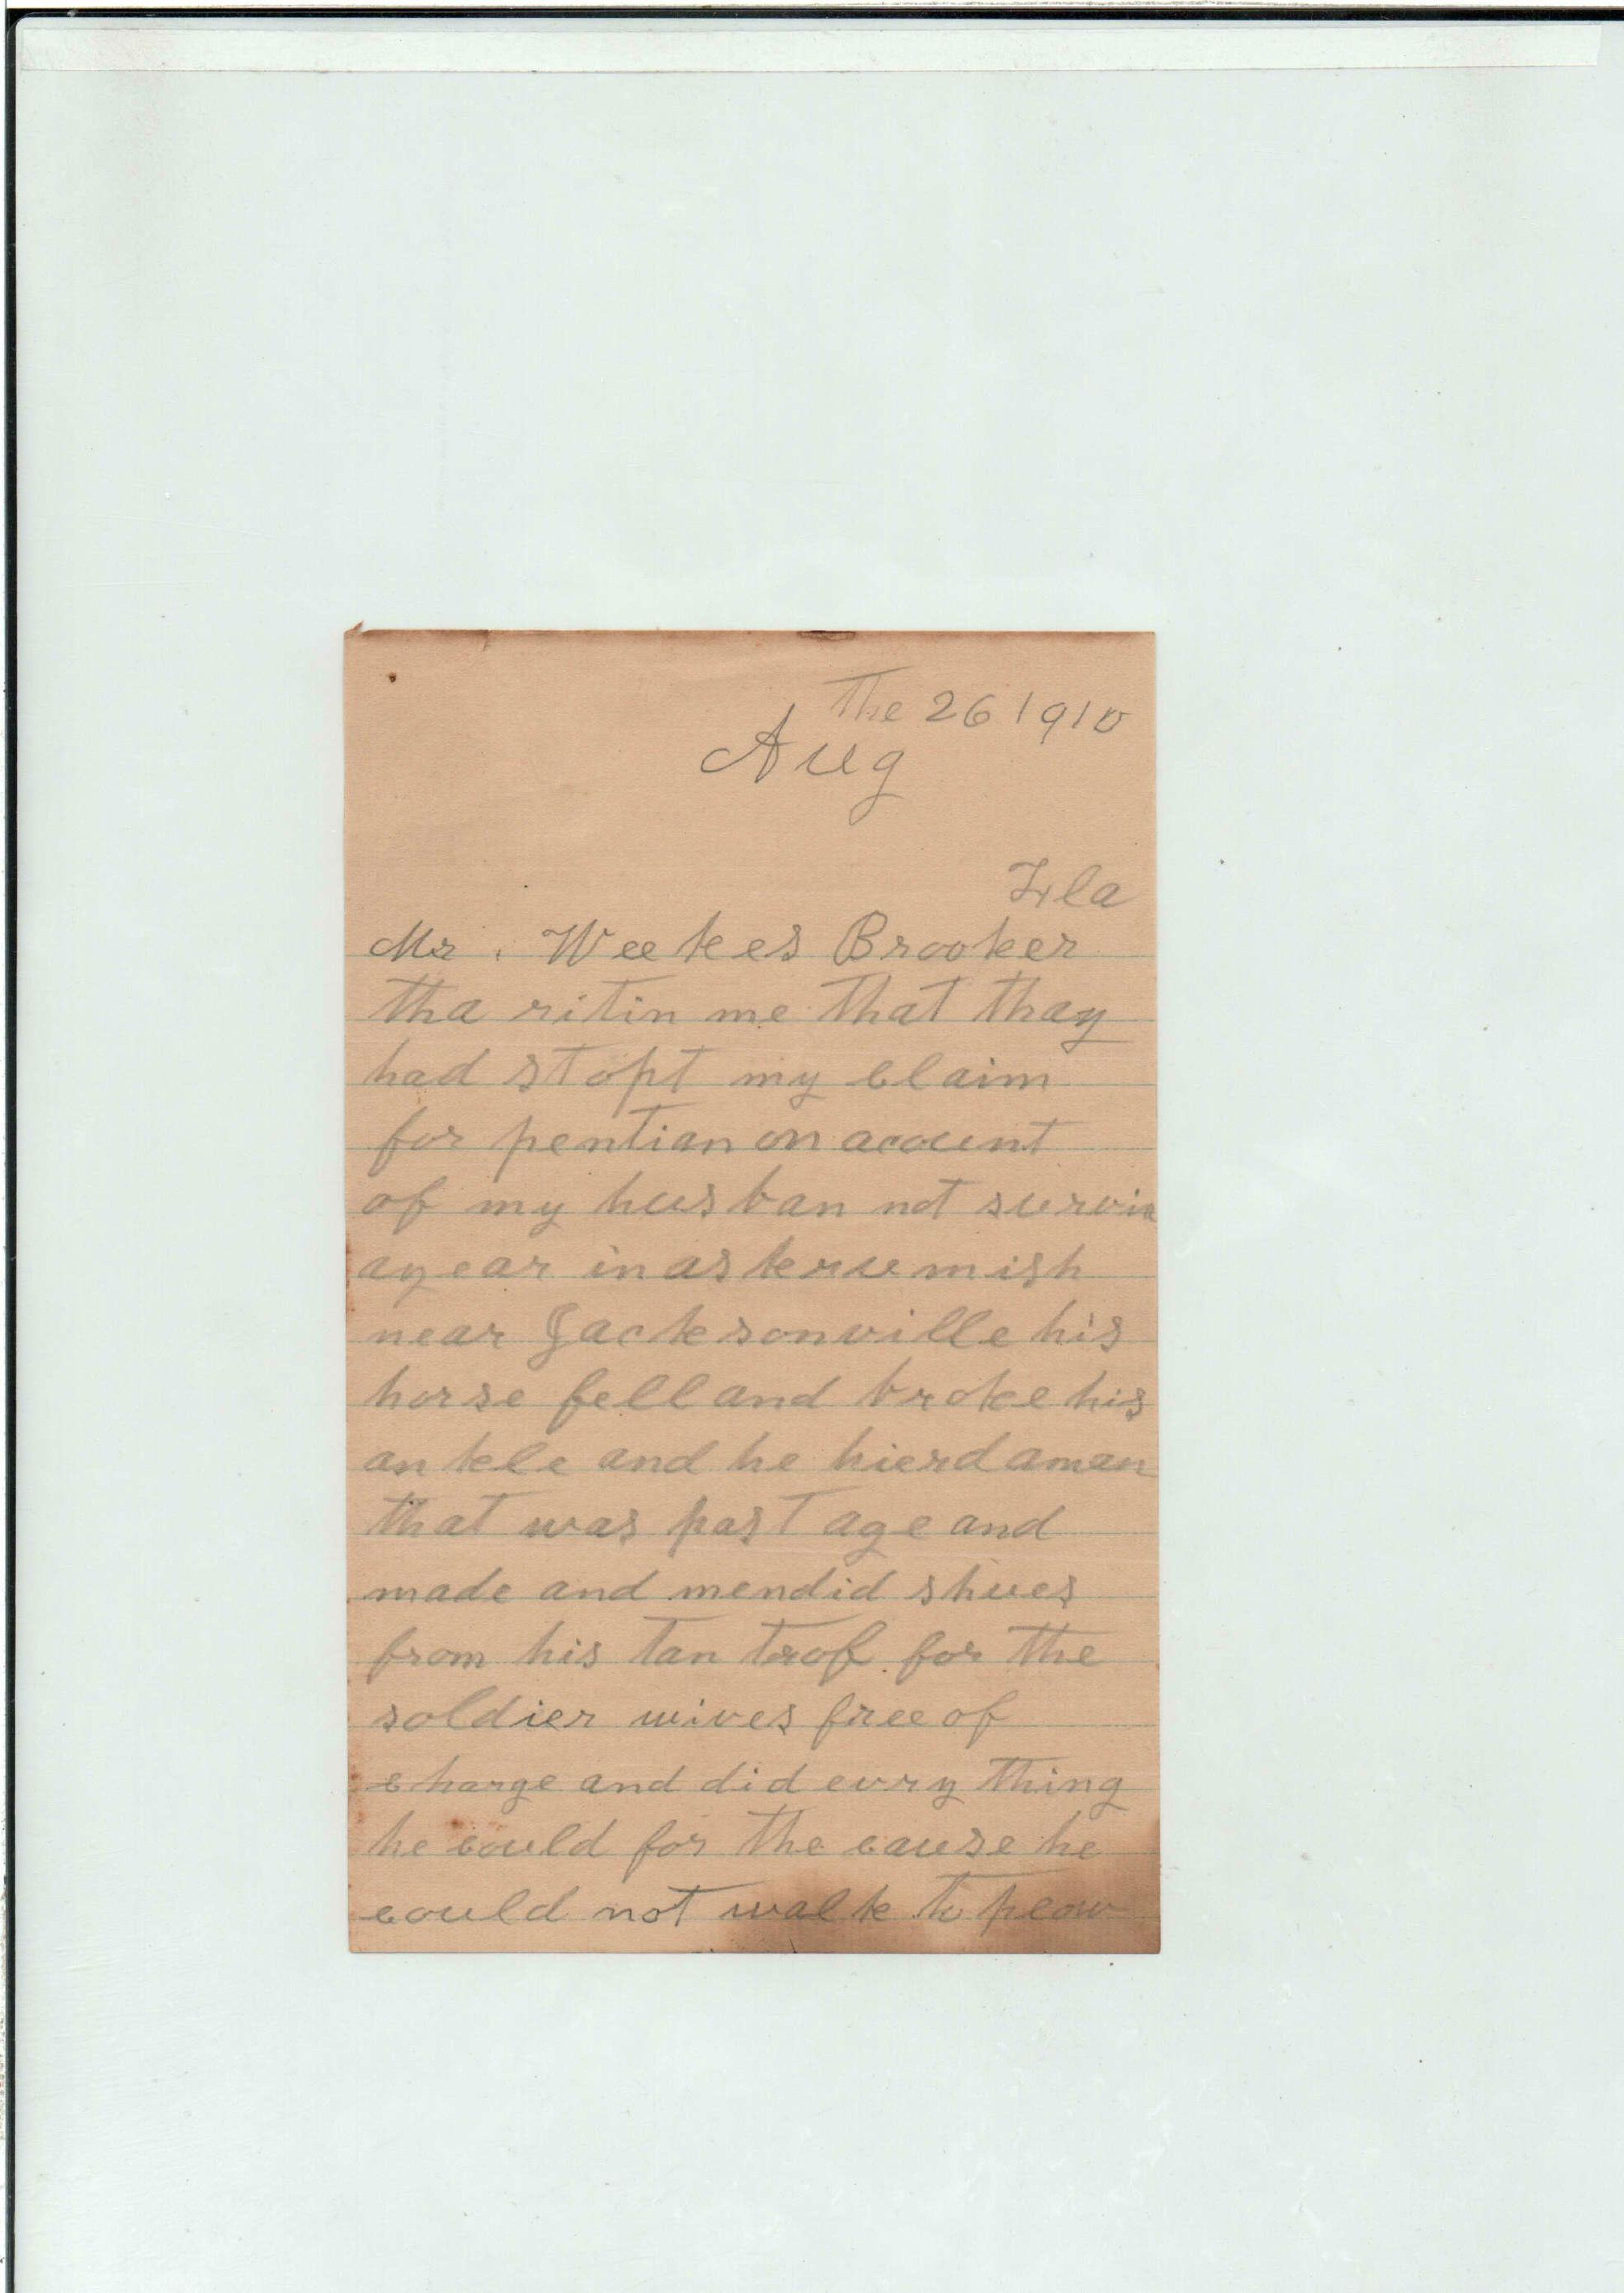 The 26 1910
Aug
Fla
Mr. Weekes Brooker
tha ritin me that thay
had stopt my claim
for pentian on acount
of my husban not survin
a year in a skrumish
near Jacksonville his
horse fell and broke his
ankle and he hierd a man
that was past age and
made and mendid shues
from his tan trof for the
soldier wives free of
charge and did evry thing
he could for the cause he
could not walk to plow